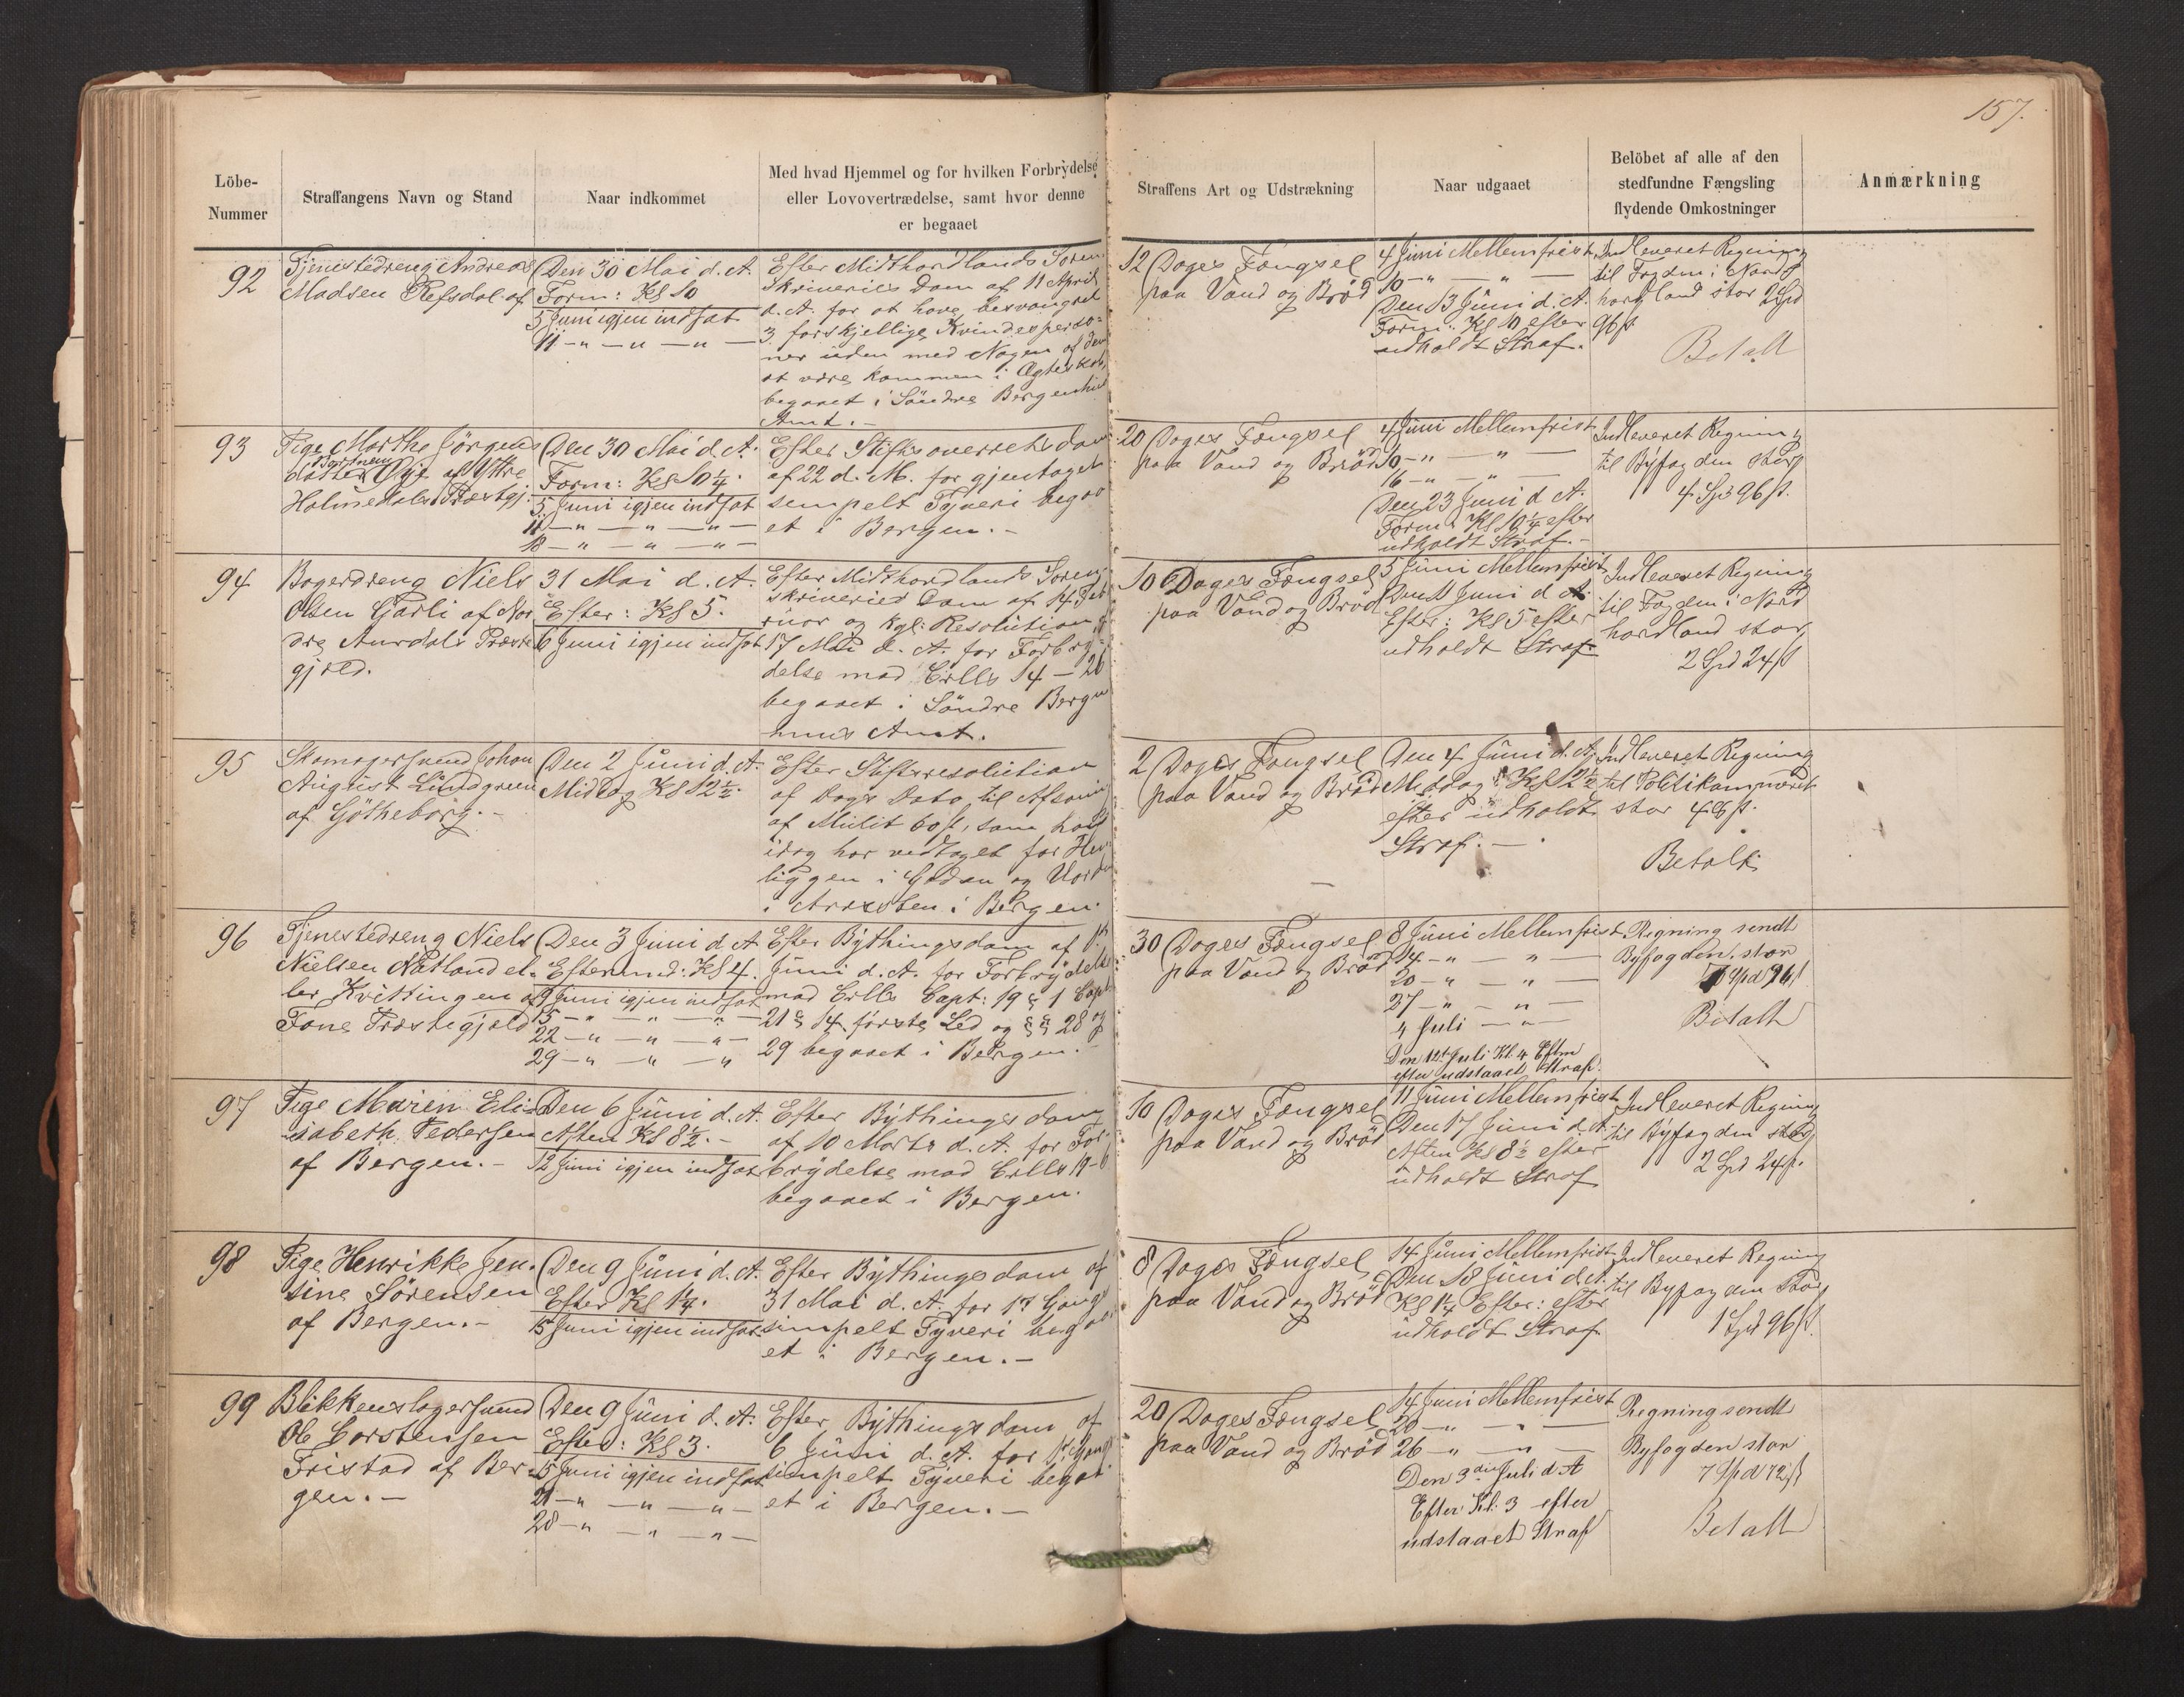 157.
Löbe-
Nummer
Straffangens Navn og Stand
Naar indkommet
Med hvad Hjemmel og for hvilken Forbrydelse
eller Lovovertrædelse, samt hvor denne
er begaaet
Straffens Art og Udstrækning
Naar udgaaet
Belöbet af alle af den
stedfundne Fængsling
flydende Omkostninger
Anmærkning
92
Tjenestedreng Andreas
Madsen Refsdal af
Den 30 Mai d. A.
Form: Kl 10
5 Juni igjen indsat
11 — " — " — " —
Efter Midthordlands Soren
skriveries Dom af 11 April
d. A. for at have besvangret
3 forskjellige Kvindesperso-
ner uden med Nogen af dem
at være kommen i Ægteskab,
begaaet i Söndre Bergenhus
Amt. —
12 Dages Fængsel
paa Vand og Bröd
4 Juni Mellemfrist
10 — " — " —
Den 13 Juni d. A.
Form: Kl 10 efter
udholdt Straf.
Indleveret Regning
til Fogden i Nord
hordland stor 2 Spd
96 s.
Betalt
93
Pige Marthe Jörgens
datter af Yttre
Holmedals Præstgj.
Den 30 Mai d. A.
Form: Kl 10 1/4.
5 Juni igjen indsat
11 — " — " — " —
18 — " — " — " —
Efter Stiftsoverrets dom
af 22 d. M. for gjentaget
simpelt Tyveri begaa
et i Bergen. —
20 Dages Fængsel
paa Vand og Bröd
4 Juni Mellemfrist
10 — " — " —
16 — " — " —
Den 23 Juni d. A.
Form: Kl 10 1/4 efter
udholdt Straf. —
Indleveret Regning
til Byfogden stor
4 Spd 96 s.
94
Bagerdreng Niels
Olsen Garli af Nor
dre Aurdals Præste
gjæld.
31 Mai d. A.
Efter: Kl 5.
6 Juni igjen indsat
Efter Midthordlands Soren-
skriveries Dom af 14 Feb
ruar og kgl: Resolution af
17 Mai d. A. for Forbry-
delse mod Crlls 14 — 26
begaaet i Söndre Bergen
huus Amt.
10 Dages Fængsel
paa Vand og Bröd
5 Juni Mellemfrist
Den 11 Juni d. A.
Efter: Kl 5 efter
udholdt Straf
Indleveret Regning
til Fogden i Nord
hordland stor
2 Spd 24 s
95
Skomagersvend Johan
August Lindgreen
af Götheborg. —
Den 2 Juni d. A.
Middag Kl 12 1/2.
Efter Stiftsresolution
af Dags Dato, til Afsoning
af Mulct 60 s, som han
idag har vedtaget for Hen
liggen i Gaden og Uorden
i Arresten i Bergen.
2 Dages Fængsel
paa Vand og Bröd
Den 4 Juni d. A.
Middag Kl 12 1/2
efter udholdt
Straf. —
Indleveret Regning
til Politikammeret
stor 48 s.
Betalt
96
Tjenestedreng Niels
Nielsen Natland el-
ler Kvittingen af
Fane Præstegjæld
Den 3 Juni d. A
Eftermid: Kl 4.
9 Juni igjen indsat
15 — " — " — " —
22 — " — " — " —
29 — " — " — "
Efter Bythingsdom af 1st
Juni d. A. for Forbrydelse
mod Crlls Capt: 19 § 1 Capt
21 § 14 förste Led og §§ 28 og
29 begaaet i Bergen. —
30 Dages Fængsel
paa Vand og Bröd
8 Juni Mellemfrist
14 — " — " —
20 — " — " —
27 — " — " —
4 Juli — " —
Den 12t Juli Kl. 4 Eftm
efter udstaaet Straf.
Regning sendt
Byfogden, stor
Betalt
97
Pige Maren Eli-
sabeth Pedersen
af Bergen. —
Den 6 Juni d. A.
Aften Kl 8 1/2. —
12 Juni igjen indsat
Efter Bythings dom
af 10 Marts d. A. for For-
brydelse mod Crlls 19-6
begaaet i Bergen.
10 Dages Fængsel
paa Vand og Bröd
11 Juni Mellemfrist
Den 17 Juni d. A.
Aften Kl 8 1/2 efter
udholdt Straf
Indleveret Regning
til Byfogden stor
2 Spd 24 s.
98
Pige Henrikke Jen-
sine Sörensen
af Bergen. —
Den 9 Juni d. A.
Efter Kl 1 1/4.
15 Juni igjen indsat
Efter Bythings dom af
31 Mai d. A. for 1st Gang
simpelt Tyveri begaa
et i Bergen. —
8 Dages Fængsel
paa Vand og Bröd
14 Juni Mellemfrist
Den 18 Juni d. A.
Kl 1 1/4 Efter: efter
udholdt Straf
Indleveret Regning
til Byfogden stor
1 Spd 96 s.
99
Blikkenslagersvend
Ole Carstensen
Fristad af Ber-
gen. —
Den 9 Juni d. A.
Efter: Kl 3.
15 Juni igjen indsat
21 — " — " — " —
28 — " — " — " —
Efter Bythings dom af
6 Juni d. A. for 1st Gang
simpelt Tyveri begaa
et i Bergen. —
20 Dages Fængsel
paa Vand og Bröd
14 Juni Mellemfrist
20 — " — " —
26 — " — " —
Den 3die Juli d. A
Efter Kl. 3 efter
udstaaet Straf
Regning sendt
Byfogden stor
7 Spd 72 s
Betalt